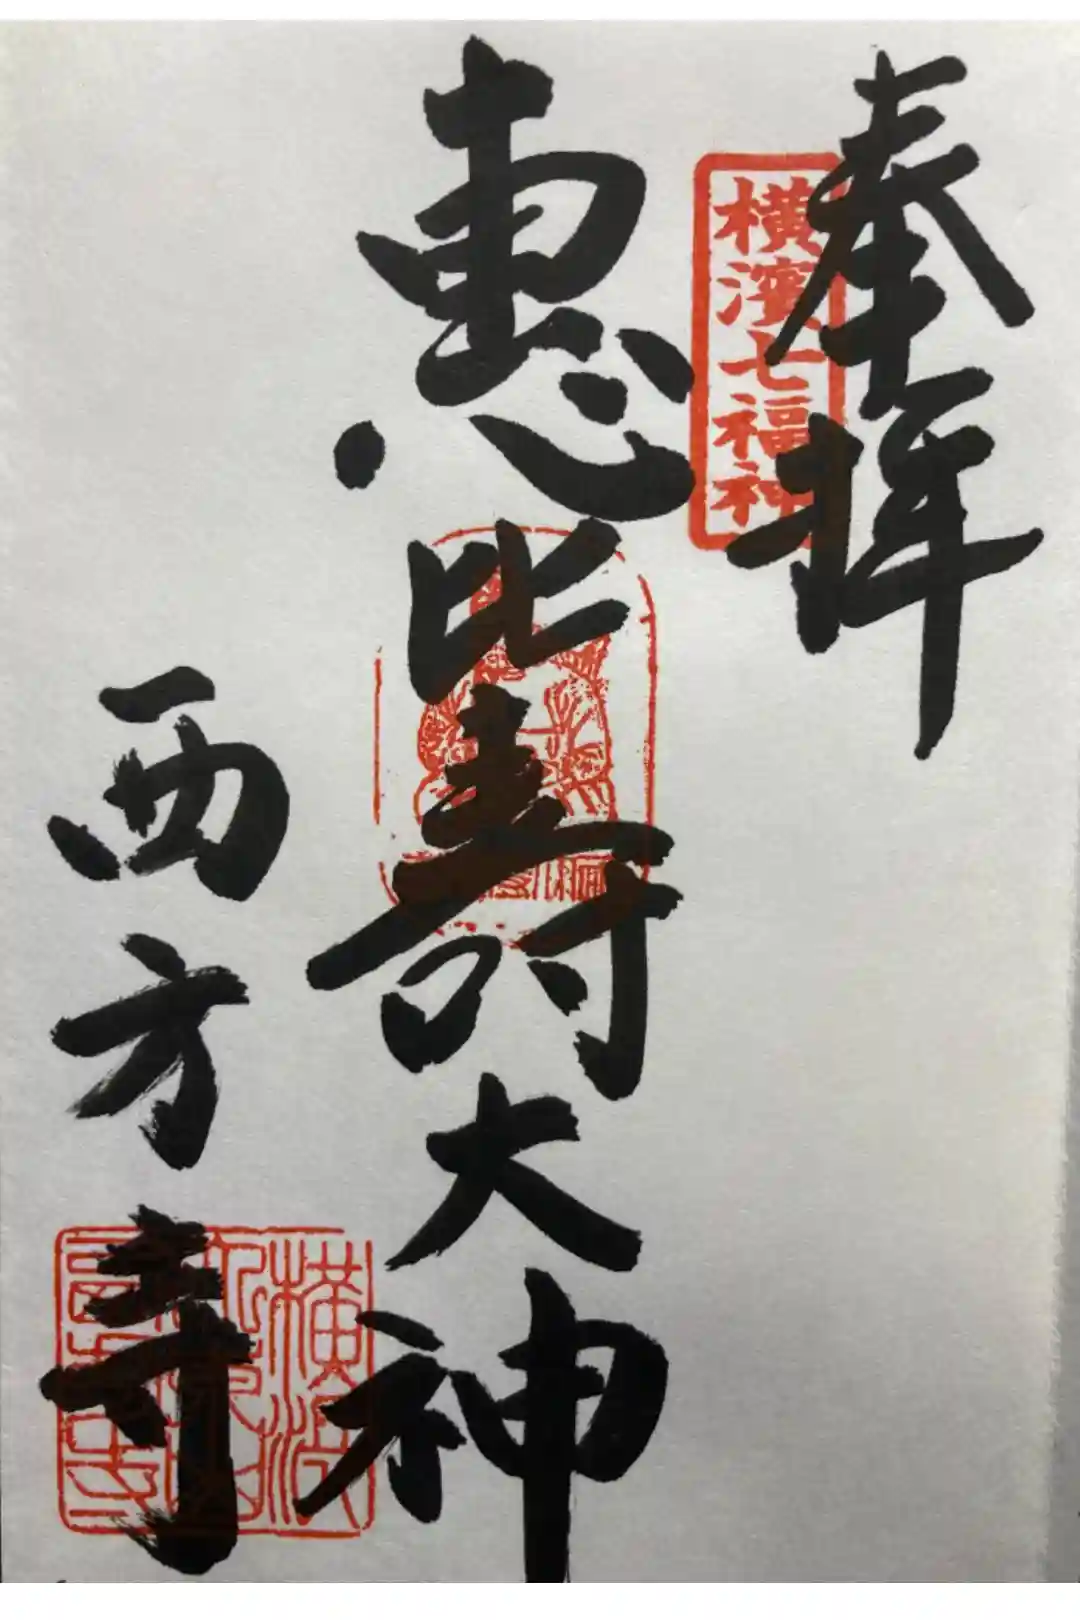 奉拝
横濱七福神
恵比寿大神
西方寺